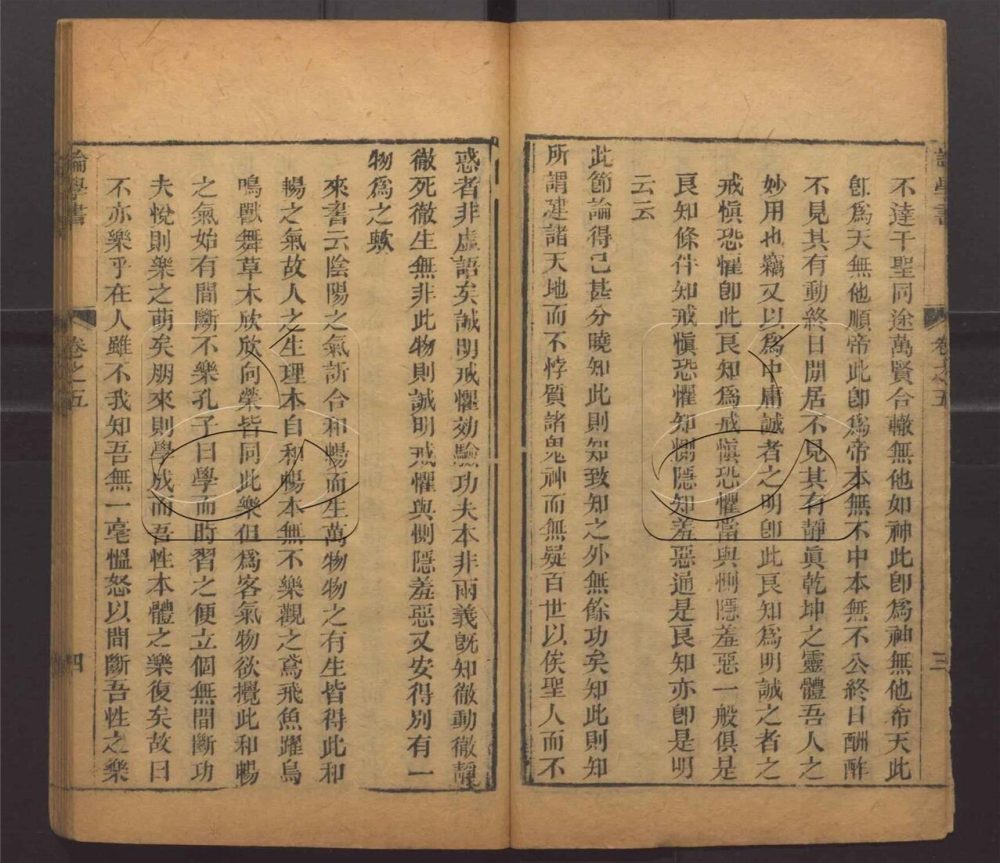 不達千聖同途萬賢合轍無他如神此卽爲神無他希天此
卽爲天無他順帝此卽爲帝本無不中本無不公終日酬酢
不見其有動終日閒居不見其有靜眞乾坤之靈體吾人之
妙用也竊又以爲中庸誠者之明卽此良知爲明誠之者之
戒愼恐懼卽此良知爲戒愼恐懼當與惻隱羞惡一般俱是
良知條件知戒愼恐懼知惻隱知羞惡通是良知亦卽是明
云云
此節論得已甚分曉知此則知致知之外無餘功矣知此則知
所謂建諸天地而不悖質諸鬼神而無疑百世以俟聖人而不
三
惑者非虛語矣誠明戒懼効驗功夫本非兩義旣知徹動徹靜
徹死徹生無非此物則誠明戒懼與惻隱羞惡又安得別有一
物爲之歟
來書云陰陽之氣訢合和暢而生萬物物之有生皆得此和
暢之氣故人之生理本自和暢本無不樂觀之鳶飛魚躍鳥
鳴獸舞草木欣欣向榮皆同此樂但爲客氣物欲攪此和暢
之氣始有間斷不樂孔子曰學而時習之便立個無間斷功
夫悅則樂之萌矣朋來則學成而吾性本體之樂復矣故曰
不亦樂乎在人雖不我知吾無一毫慍怒以間斷吾性之樂
論學書
卷之五
四